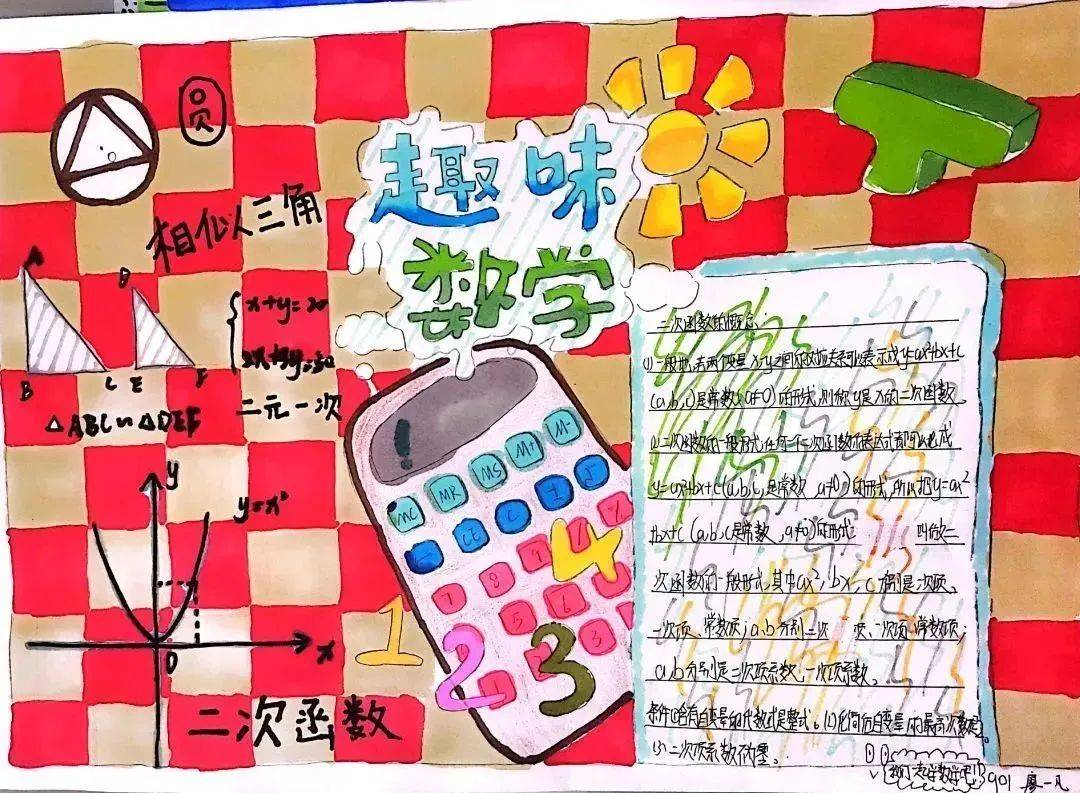 圆
趣味
数学
相似三角
A
D
B C E F
△ABC∽△DEF
x+y=20
二元一次
y
y=x²
0
x
二次函数
1
2
3
4
MC MR MS M+ M-
CE C ±
二次函数的概念
(1)一般地,若两个变量x、y之间的对应关系可以表示成y=ax²+bx+c
(a,b,c)是常数,(a≠0)的形式,则称y是x的二次函数。
(2)二次函数的一般形式:任何一个二次函数的表达式都可以化成
y=ax²+bx+c(a,b,c,是常数,a≠0)的形式,所以把y=ax²
+bx+c(a,b,c是常数,a≠0)的形式 叫做二
次函数的一般形式,其中ax²,bx,c分别是二次项。
一次项、常数项;a,b分别二次 项、一次项、常数项;
a,b分别是二次项系数,一次项系数。
条件:(1)含有自变量的代数式是整式。(2)化简后自变量的最高次数是2。
(3)二次项系数不为零。
901 廖一凡